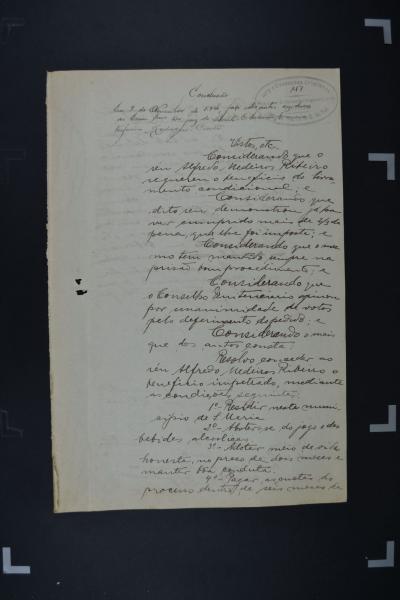 Conclusão
Em 2 de de 19 faço
Vistos, etc.
Considerando que o
réu Alfredo Medeiros Ribeiro
requereu o beneficio do livra-
mento condicional; e
Considerando que
dito réu demonstrou já ha-
ver cumprido mais de da
pena, que lhe foi imposta; e
Considerando que o mes-
mo tem mantido sempre na
prisão bom procedimento; e
Considerando que
o Conselho Penitenciario opinou
por unanimidade de votos
pelo deferimento do pedido; e
Considerando o mais
que dos autos consta:
Resolvo conceder ao
réu Alfredo Medeiros Ribeiro o
beneficio impetrado, mediante
as condições seguintes:
1º- Residir neste muni-
cipio de S. Maria
2º- Abster-se do jogo e das
bebidas alcoolicas
3º- Obter meio de vida
honesto, no prazo de dois meses e
manter bôa conduta.
4º- Pagar as custas do
processo dentro de seis meses da